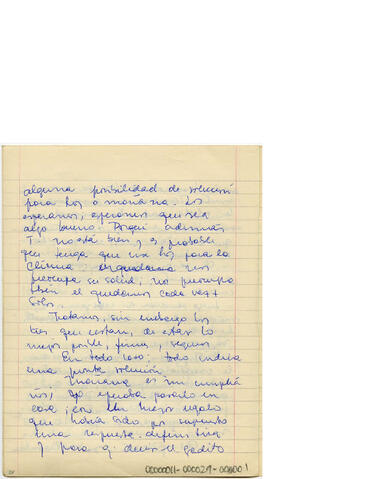 alguna posibilidad de solución
para hoy o mañana. Los
esperamos, esperamos que sea
algo bueno. Porque además
T. no está bien y es probable
que tenga que ir hoy para la
Clínica nos
preocupa su salud, nos preocupa
tbién el quedarnos cada vez +
solos.
Tratamos, sin embargo los
tres que restan, de estar lo
mejor posible, firmes, y seguros
En todo caso; todo indica
una pronta solución.
Mañana es mi cumplea
ños, y esperaba pasarlo en
casa, con un mejor regalo
que habría sido por supuesto
una respuesta definitiva
y para q' decir el gustito
00000011-000029-000001